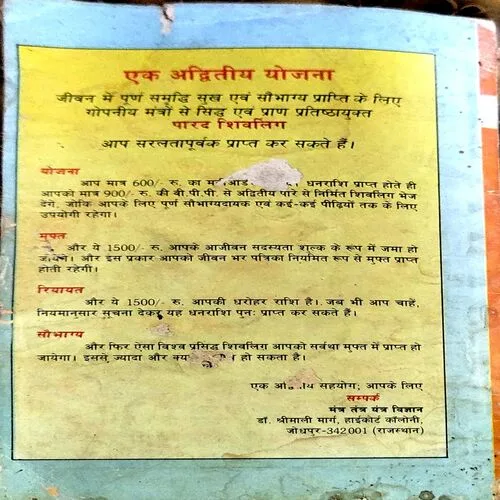 एक अद्वितीय योजना
जीवन में पूर्ण समृद्धि सुख एवं सौभाग्य प्राप्ति के लिए
गोपनीय मंत्रों से सिद्ध एवं प्राण प्रतिष्ठायुक्त
पारद शिवलिंग
आप सरलतापूर्वक प्राप्त कर सकते हैं।
योजना
आप मात्र 600/- रु. का धनराशि प्राप्त होते ही
आपको मात्र 900/- रु. की वी.पी.पी. से अद्वितीय पारे से निर्मित शिवलिंग भेज
देंगे, जोकि आपके लिए पूर्ण सौभाग्यदायक एवं कई-कई पीढ़ियों तक के लिए
उपयोगी रहेगा।
मुफ्त
और ये 1500/- रु. आपके आजीवन सदस्यता शुल्क के रूप में जमा हो
जायेंगे। और इस प्रकार आपको जीवन भर पत्रिका नियमित रूप से मुफ्त प्राप्त
होती रहेगी।
रियायत
और ये 1500/- रु. आपकी धरोहर राशि है। जब भी आप चाहें,
नियमानुसार सूचना देकर यह धनराशि पुनः प्राप्त कर सकते हैं।
सौभाग्य
और फिर ऐसा विश्व प्रसिद्ध शिवलिंग आपको सर्वथा मुफ्त में प्राप्त हो
जायेगा। इससे ज्यादा और हो सकता है।
एक सहयोग; आपके लिए
सम्पर्क
मंत्र तंत्र यंत्र विज्ञान
डॉ. श्रीमाली मार्ग, हाईकोर्ट कॉलोनी,
जोधपुर-342001 (राजस्थान)